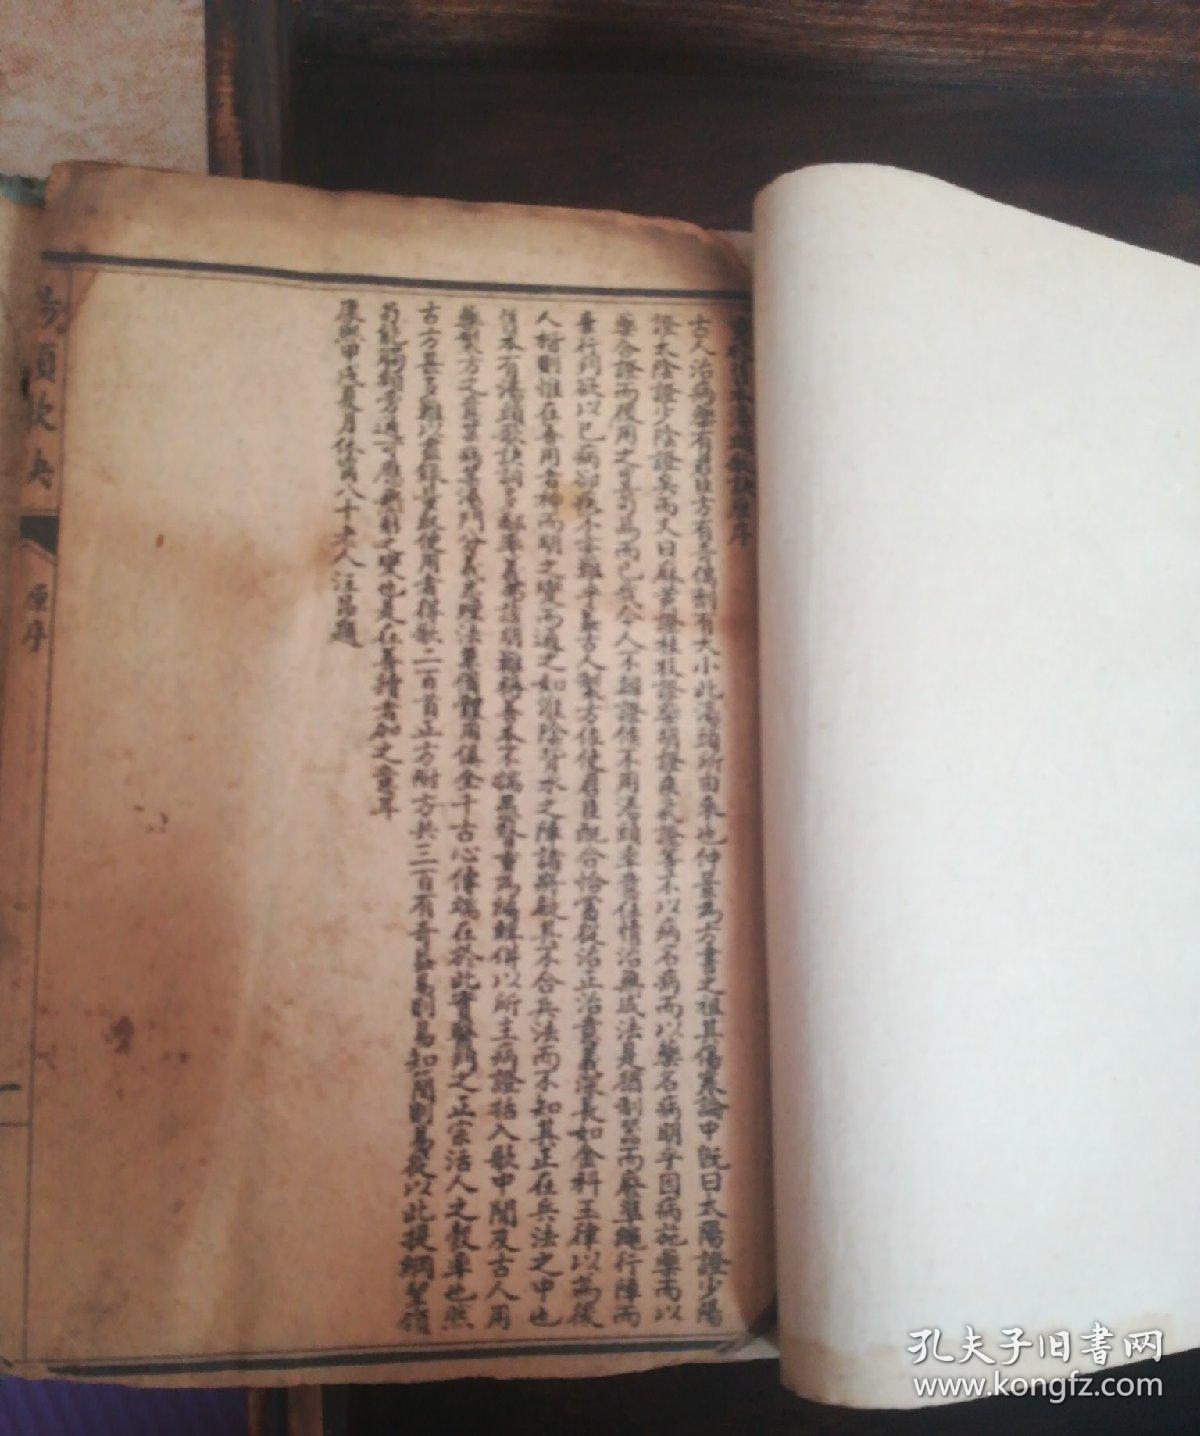 古人治病藥有君臣方有奇偶劑有大小此湯頭所由來也仲景為方書之祖其傷寒論中既曰太陽證少陽
證太陰證少陰證矣而又曰麻黃證桂枝證柴胡證承氣證等不以病名病而以藥名病明乎因病施藥而以
藥合證而後用之豈苟為而已哉今人不辯證候不用湯頭率意任情治無成法是猶制器而廢準繩行陣而
棄行列欲以已病卻疾不亦難乎蓋古人製方佐使君臣配合恰當從治正治意義深長如金科玉律以為後
人楷則惟在善用者神而明之變而通之如淮陰背水之陣諸將疑其不合兵法而不知其正在兵法之中也
舊本有湯頭歌訣詞多鄙率義弗該明難稱善本不揣愚瞽重為編輯併以所主病證括入歌中間及古人用
藥製方之意某病某湯門分義悉理法兼備體用俱全千古心傳端在於此實醫門之正宗活人之彀率也然
古方甚多難以盡錄量取便用者得歌二百首正方附方共三百有奇蓋易則易知簡則易從以此提綱挈領
苟能觸類旁通可應無窮之變也是在善讀者加之意耳
康熙甲戌夏月休寧八十老人汪昂題
湯頭歌訣
原序
一
孔夫子旧書网
www.kongfz.com